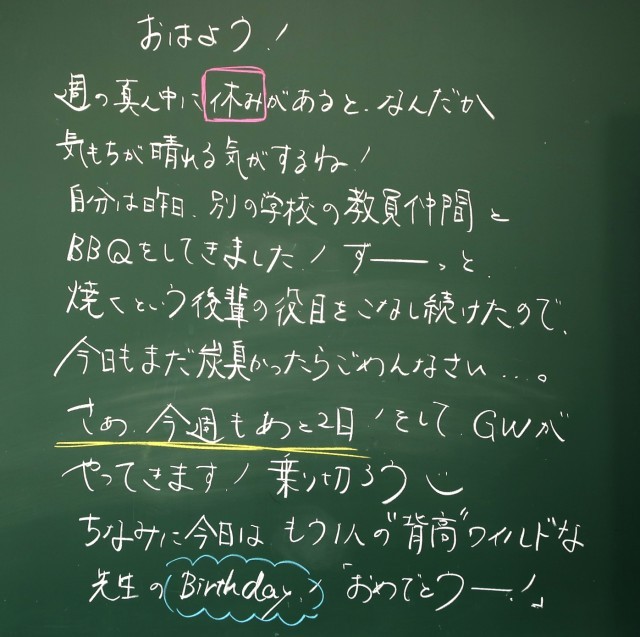 おはよう!
週の真ん中に休みがあると、なんだか
気もちが晴れる気がするね!
自分は昨日、別の学校の教員仲間と
BBQをしてきました!ずーーっと、
焼くという後輩の役目をこなし続けたので、
今日もまだ炭臭かったらごめんなさい…。
さぁ、今週もあと2日!そして、GWが
やってきます!乗り切ろう
ちなみに今日は、もう1人の"背高"ワイルドな
先生のBirthday!「おめでとうー!」